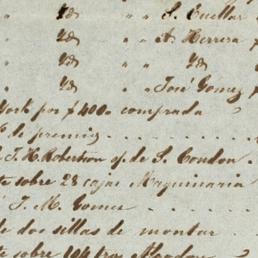 Yd " " S. Cuellar
Yd " " A. Herrera
Yd " " Yd
Yd " " José Gomez
York por $400 comprada
de premio
J. H. Robertson of. de S. Condon
sobre 28 cajas Maquinaria
J. M. Gomez
de dos sillas de montar
sobre 104 tros Algodon